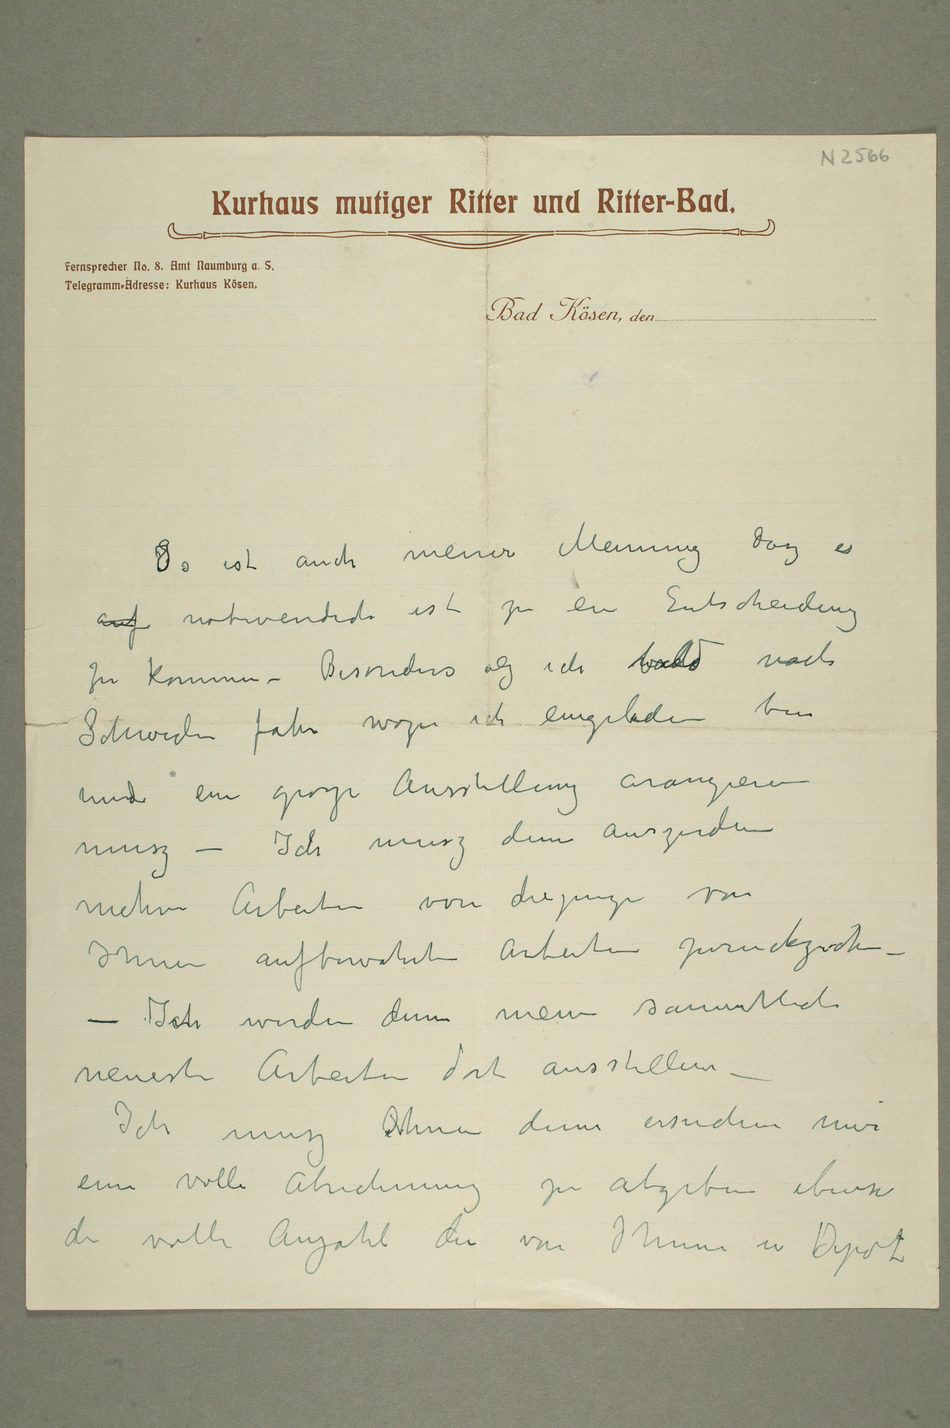 N 2566
Kurhaus mutiger Ritter und Ritter-Bad.
Fernsprecher No. 8. Amt Naumburg a. S.
Telegramm-Adresse: Kurhaus Kösen.
Bad Kösen, den
Es ist auch meiner Meinung dasz es
auf notwendich ist zu ein Entscheidung
zu kommen – Besonders als ich bald nach
Schweden fahr wozu ich eingeladen bin
und ein grosze Ausstellung arangieren
musz – Ich musz denn auszerdem
mehre Arbeiten von diejenige von
Ihnen aufbewahrten Arbeiten zurückziehen –
– Ich werden denn meine sammtliche
neueste Arbeiten dort ausstellen –
Ich musz Ihnen denn ersuchen mir
eine volle Abrechnung zu abgeben ebenso
die volle Anzahl die von Ihnen in Depot